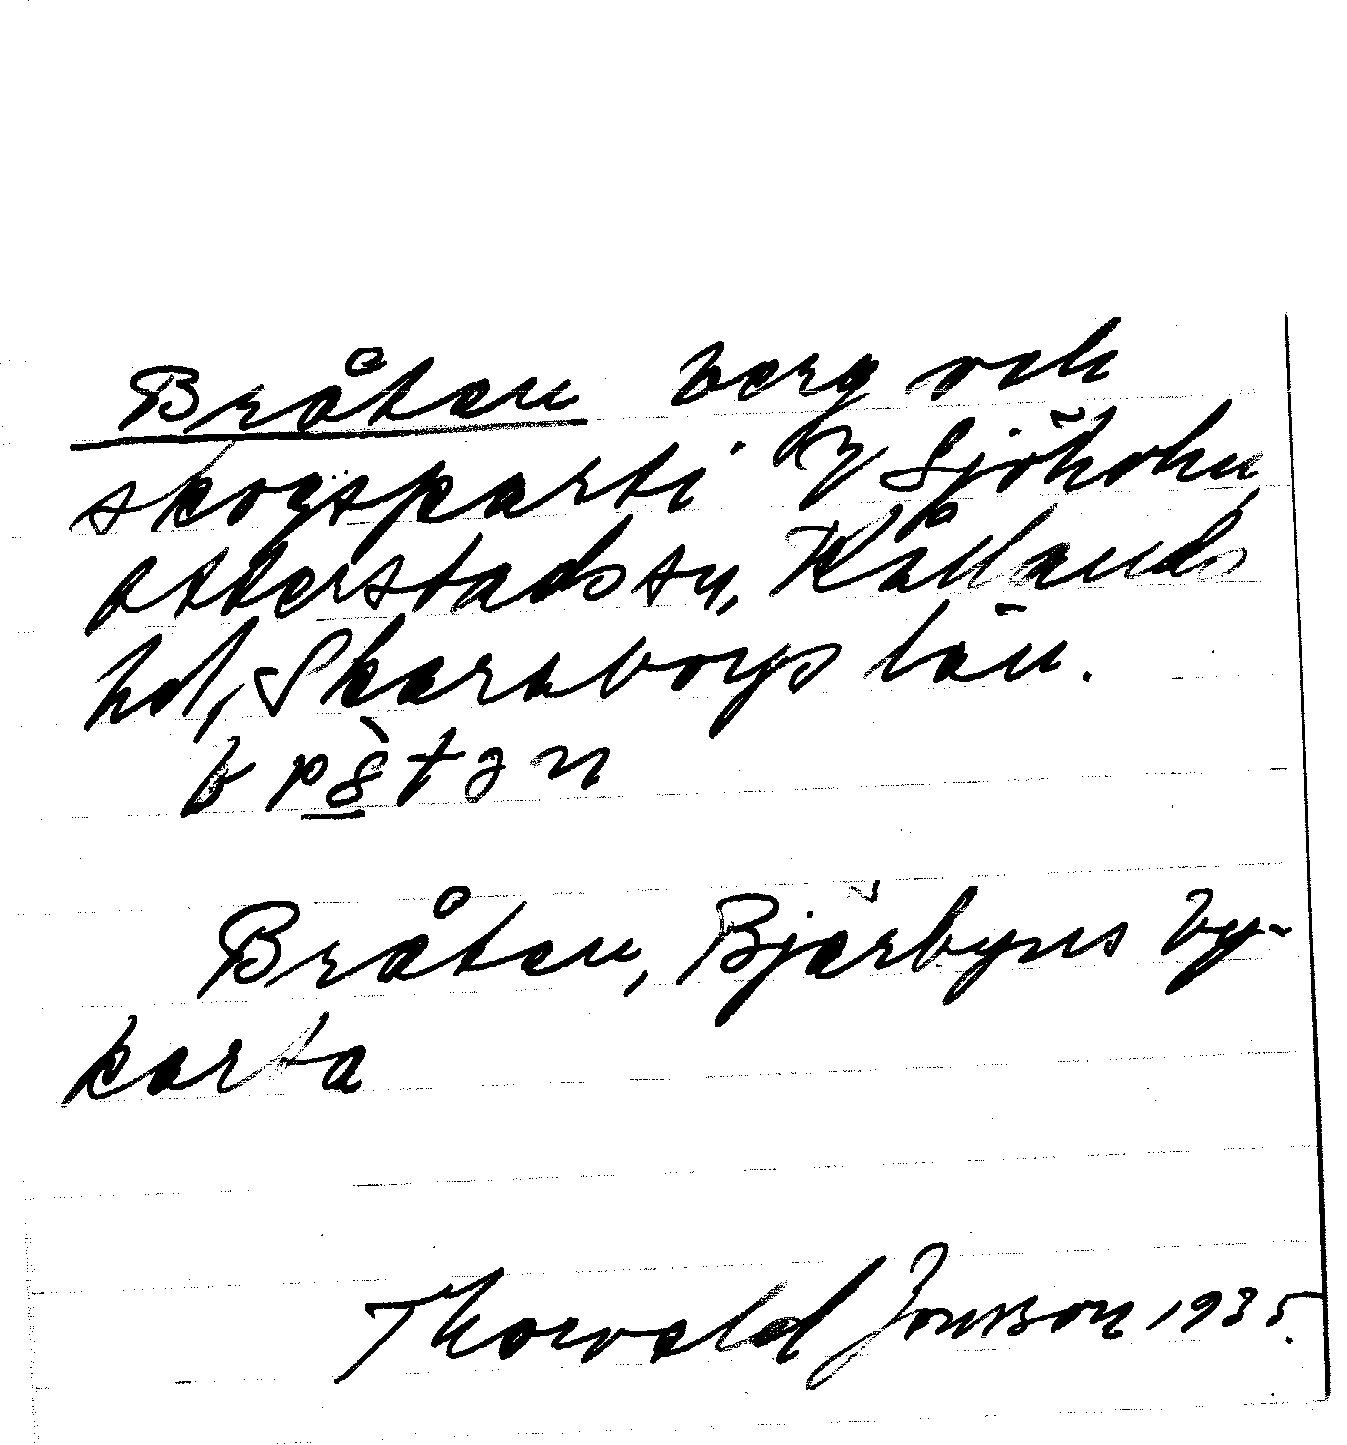 Bråten berg och
skogsparti V Sjöholm
Otterstads sn, Kållands
hd, Skaraborgs län.
Bråten, Bjärbyns by-
karta
Thorvald Jonsson 1935.